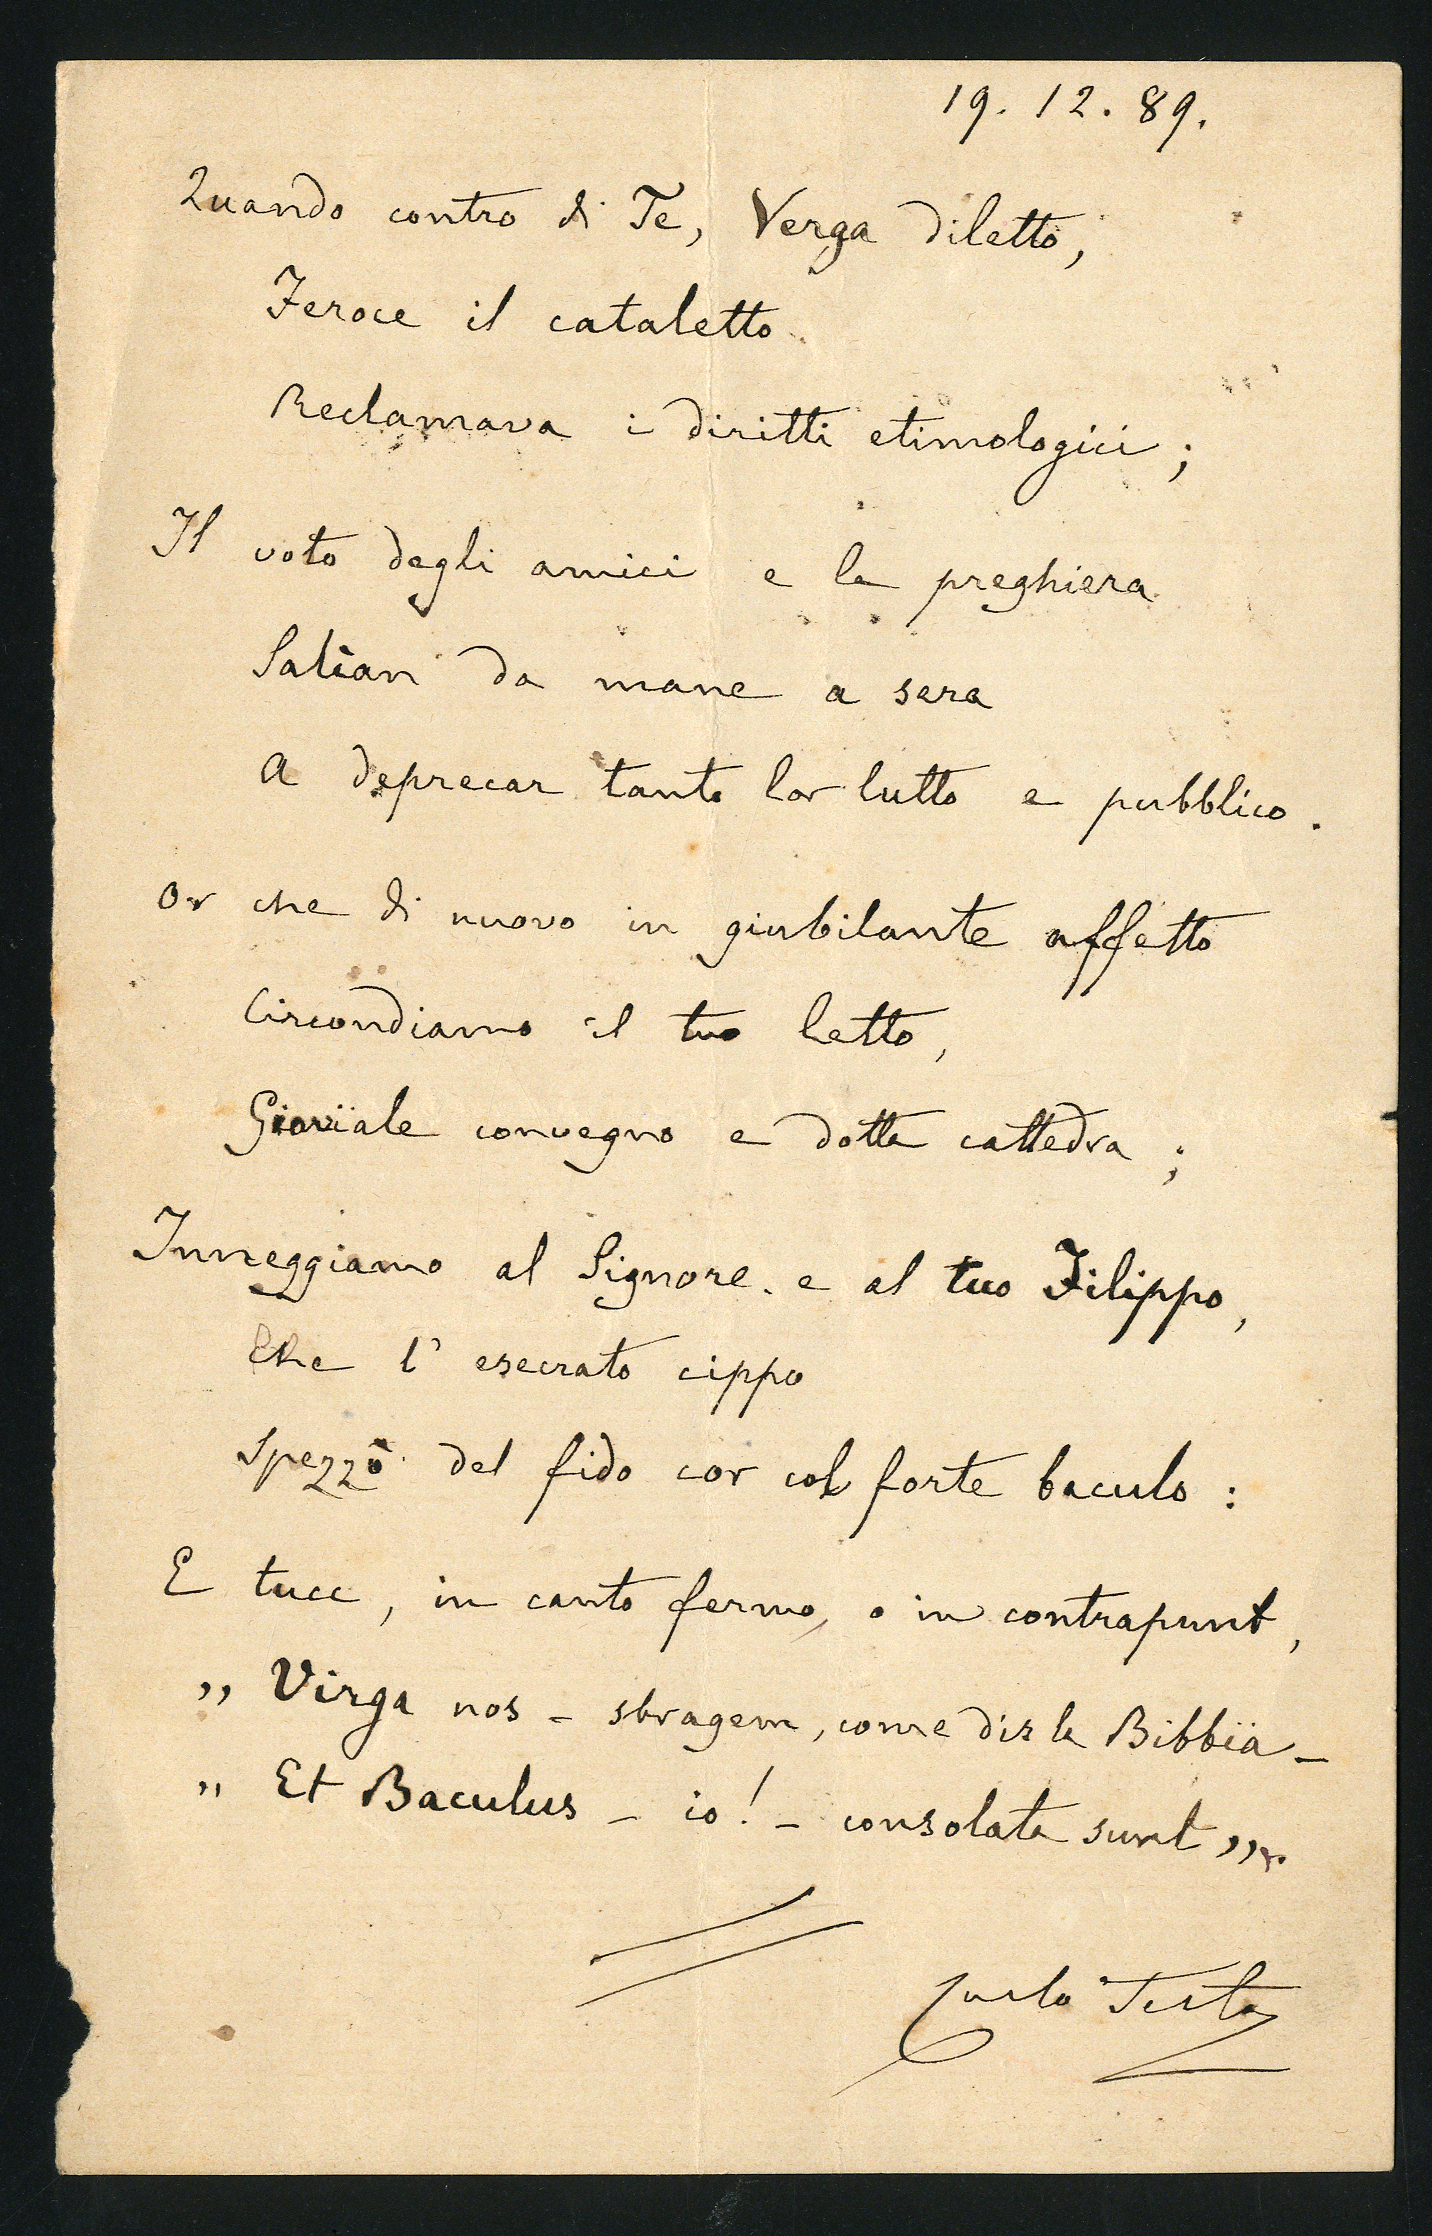 19. 12. 89.
Quando contro di Te, Verga diletto,
Feroce il cataletto
Reclamava i diritti etimologici;
Il voto degli amici e la preghiera
Salìan da mane a sera
A deprecar tanto lor lutto e pubblico.
Or che di nuovo in giubilante affetto
Circondiamo il tuo letto,
Giovïale convegno e dotta cattedra;
Inneggiamo al Signore e al tuo Filippo,
Che l'esecrato cippo
Spezzò del fido cor col forte baculo:
E tucc, in canto fermo, o in contrapunt,
„ Virga nos - sbragem, come dis la Bibbia -
„ Et Baculus - io! - consolata sunt „.
Carlo Testa